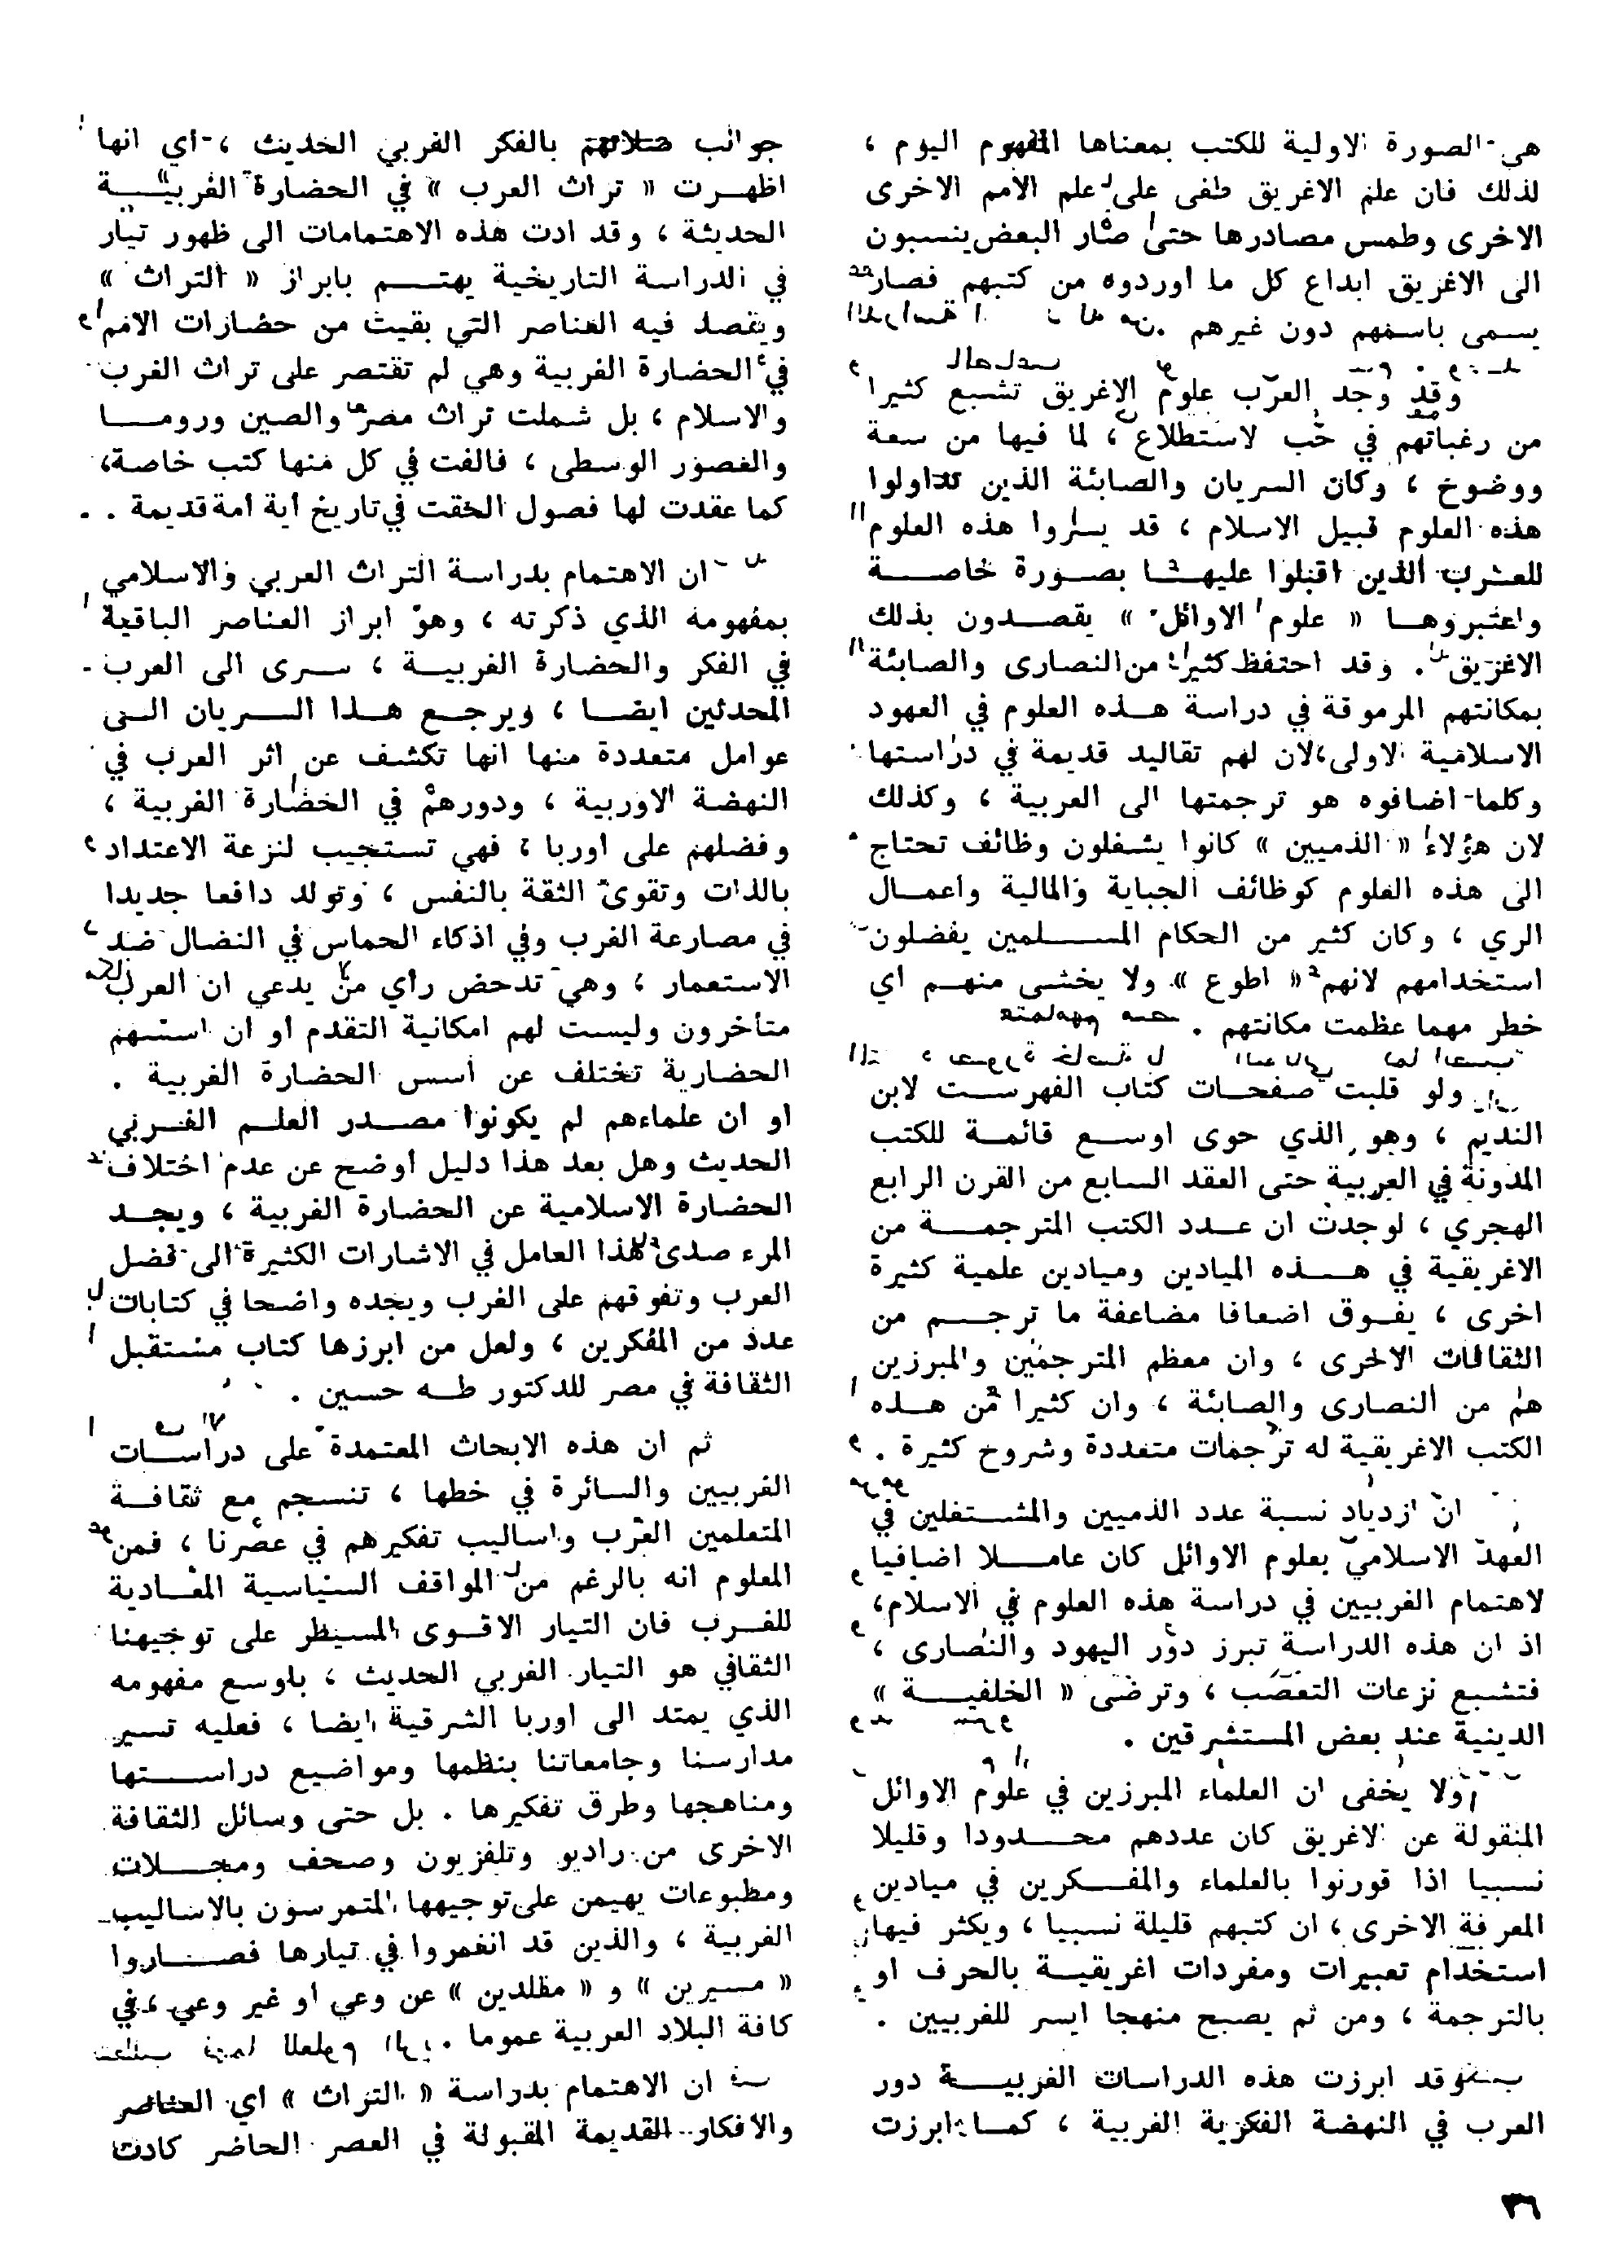 هي الصورة الاولية للكتب بمعناها المفهوم اليوم ،
لذلك فان علم الاغريق طفى على علم الامم الاخرى
الاخرى وطمس مصادرها حتى صار البعض ينسبون
الى الاغريق ابداع كل ما اوردوه من كتبهم فصار
يسمى باسمهم دون غيرهم .
وقد وجد العرب علوم الاغريق تشبع كثيرا
من رغباتهم في حب لاستطلاع ، لما فيها من سعة
ووضوح ، وكان السريان والصابئة الذين تداولوا
هذه العلوم قبيل الاسلام ، قد يسروا هذه العلوم
للعرب الذين اقبلوا عليها بصورة خاصة
واعتبروها « علوم الاوائل » يقصدون بذلك
الاغريق . وقد احتفظ كثير من النصارى والصابئة
بمكانتهم المرموقة في دراسة هذه العلوم في العهود
الاسلامية الاولى ، لان لهم تقاليد قديمة في دراستها
وكلما اضافوه هو ترجمتها الى العربية ، وكذلك
لان هؤلاء « الذميين » كانوا يشغلون وظائف تحتاج
الى هذه العلوم كوظائف الجباية والمالية واعمال
الري ، وكان كثير من الحكام المسلمين يفضلون
استخدامهم لانهم « اطوع » ولا يخشى منهم اي
خطر مهما عظمت مكانتهم .
ولو قلبت صفحات كتاب الفهرست لابن
النديم ، وهو الذي حوى اوسع قائمة للكتب
المدونة في العربية حتى العقد السابع من القرن الرابع
الهجري ، لوجدت ان عدد الكتب المترجمة من
الاغريقية في هذه الميادين وميادين علمية كثيرة
اخرى ، يفوق اضعافا مضاعفة ما ترجم من
الثقافات الاخرى ، وان معظم المترجمين والمبرزين
هم من النصارى والصابئة ، وان كثيرا من هذه
الكتب الاغريقية له ترجمات متعددة وشروح كثيرة .
ان ازدياد نسبة عدد الذميين والمشتغلين في
العهد الاسلامي بعلوم الاوائل كان عاملا اضافيا
لاهتمام الغربيين في دراسة هذه العلوم في الاسلام،
اذ ان هذه الدراسة تبرز دور اليهود والنصارى ،
فتشبع نزعات التعصب ، وترضى « الخلفية »
الدينية عند بعض المستشرقين .
ولا يخفى ان العلماء المبرزين في علوم الاوائل
المنقولة عن الاغريق كان عددهم محدودا وقليلا
نسبيا اذا قورنوا بالعلماء والمفكرين في ميادين
المعرفة الاخرى ، ان كتبهم قليلة نسبيا ، ويكثر فيها
استخدام تعبيرات ومفردات اغريقية بالحرف او
بالترجمة ، ومن ثم يصبح منهجا ايسر للغربيين .
وقد ابرزت هذه الدراسات الغربية دور
العرب في النهضة الفكرية الغربية ، كما ابرزت
جوانب صلاتهم بالفكر الغربي الحديث ، اي انها
اظهرت « تراث العرب » في الحضارة الغربية
الحديثة ، وقد ادت هذه الاهتمامات الى ظهور تيار
في الدراسة التاريخية يهتم بابراز « التراث »
ويقصد فيه العناصر التي بقيت من حضارات الامم
في الحضارة الغربية وهي لم تقتصر على تراث العرب
والاسلام ، بل شملت تراث مصر والصين وروما
والعصور الوسطى ، فالفت في كل منها كتب خاصة،
كما عقدت لها فصول الحقت في تاريخ أية امة قديمة . .
ان الاهتمام بدراسة التراث العربي والاسلامي
بمفهومه الذي ذكرته ، وهو ابراز العناصر الباقية
في الفكر والحضارة الغربية ، سرى الى العرب
المحدثين ايضا ، ويرجع هذا السريان الى
عوامل متعددة منها انها تكشف عن اثر العرب في
النهضة الاوربية ، ودورهم في الحضارة الغربية ،
وفضلهم على اوربا ، فهي تستجيب لنزعة الاعتداد
بالذات وتقوى الثقة بالنفس ، وتولد دافعا جديدا
في مصارعة الغرب وفي اذكاء الحماس في النضال ضد
الاستعمار ، وهي تدحض رأي من يدعي ان العرب
متأخرون وليست لهم امكانية التقدم او ان اسسهم
الحضارية تختلف عن أسس الحضارة الغربية .
او ان علماءهم لم يكونوا مصدر العلم الغربي
الحديث وهل بعد هذا دليل أوضح عن عدم اختلاف
الحضارة الاسلامية عن الحضارة الغربية ، ويجد
المرء صدى لهذا العامل في الاشارات الكثيرة الى فضل
العرب وتفوقهم على الغرب ويجده واضحا في كتابات
عدد من المفكرين ، ولعل من ابرزها كتاب مستقبل
الثقافة في مصر للدكتور طه حسين .
ثم ان هذه الابحاث المعتمدة على دراسات
الغربيين والسائرة في خطها ، تنسجم مع ثقافة
المتعلمين العرب واساليب تفكيرهم في عصرنا ، فمن
المعلوم انه بالرغم من المواقف السياسية المعادية
للغرب فان التيار الاقوى المسيطر على توجيهنا
الثقافي هو التيار الغربي الحديث ، باوسع مفهومه
الذي يمتد الى اوربا الشرقية ايضا ، فعليه تسير
مدارسنا وجامعاتنا بنظمها ومواضيع دراستها
ومناهجها وطرق تفكيرها . بل حتى وسائل الثقافة
الاخرى من راديو وتلفزيون وصحف ومجلات
ومطبوعات يهيمن على توجيهها المتمرسون بالاساليب
الغربية ، والذين قد انغمروا في تيارها فصاروا
« مسيرين » و « مقلدين » عن وعي أو غير وعي ، في
كافة البلاد العربية عموما .
ان الاهتمام بدراسة « التراث » اي العناصر
والافكار القديمة المقبولة في العصر الحاضر كادت
٣٦